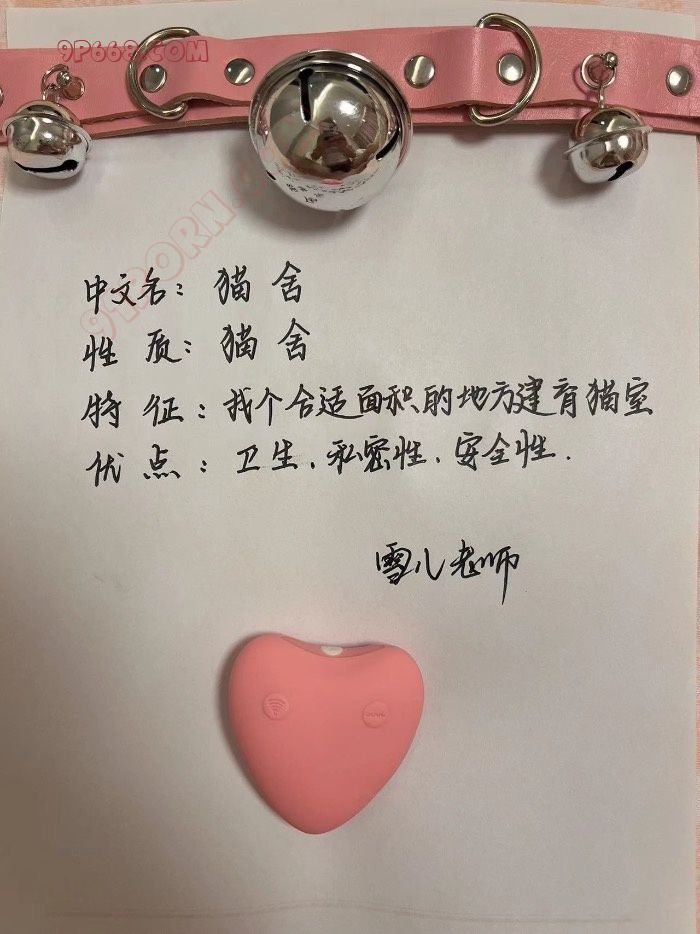 9P668.COM
91PORN.C
中文名：猫舍
性质：猫舍
特征：找个合适面积的地方建育猫室
优点：卫生、私密性、安全性.
雪儿老师